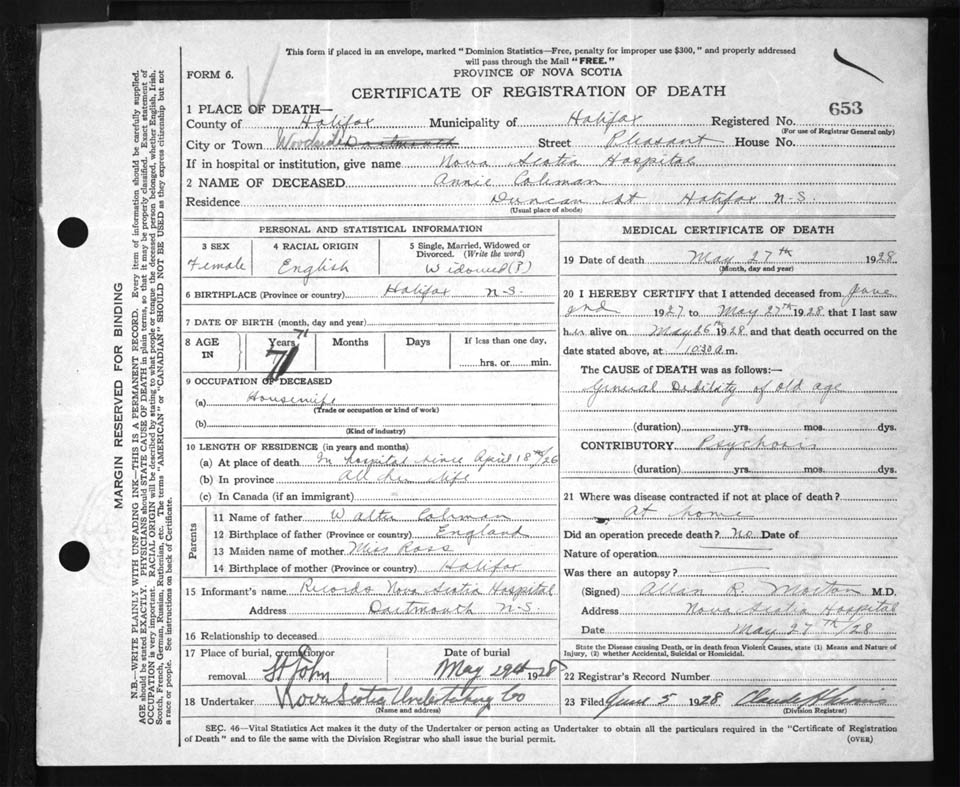 This form if placed in an envelope, marked "Dominion Statistics—Free, penalty for improper use $300," and properly addressed
will pass through the Mail "FREE."
FORM 6.
PROVINCE OF NOVA SCOTIA
CERTIFICATE OF REGISTRATION OF DEATH
1 PLACE OF DEATH—
653
County of Halifax Municipality of Halifax Registered No.
(For use of Registrar General only)
City or Town Woodside Dartmouth Street Pleasant House No.
If in hospital or institution, give name Nova Scotia Hospital
2 NAME OF DECEASED Annie Coleman
Residence Duncan St Halifax N.S.
(Usual place of abode)
PERSONAL AND STATISTICAL INFORMATION
3 SEX 4 RACIAL ORIGIN 5 Single, Married, Widowed or
Divorced. (Write the word)
Female English Widowed(?)
6 BIRTHPLACE (Province or country) Halifax N.S.
7 DATE OF BIRTH (month, day and year)
8 AGE IN Years 71 71 Months Days If less than one day,
hrs. or min.
9 OCCUPATION OF DECEASED
(a) Housewife
(Trade or occupation or kind of work)
(b)
(Kind of industry)
10 LENGTH OF RESIDENCE (in years and months)
(a) At place of death In hospital since April 18th/26
(b) In province All her life
(c) In Canada (if an immigrant)
Parents
11 Name of father Walter Coleman
12 Birthplace of father (Province or country) England
13 Maiden name of mother Miss Ross
14 Birthplace of mother (Province or country) Halifax
15 Informant's name Records Nova Scotia Hospital
Address Dartmouth N.S.
16 Relationship to deceased
17 Place of burial, cremation or Date of burial
removal St John May 29th 1928
18 Undertaker Nova Scotia Undertaking Co
(Name and address)
MEDICAL CERTIFICATE OF DEATH
19 Date of death May 27th 1928
(Month, day and year)
20 I HEREBY CERTIFY that I attended deceased from June
2nd 1927 to May 27th 1928 that I last saw
her alive on May 26th 1928 and that death occurred on the
date stated above, at 10:30 a.m.
The CAUSE of DEATH was as follows:—
General Debility of old age
(duration) yrs. mos. dys.
CONTRIBUTORY Psychosis
(duration) yrs. mos. dys.
21 Where was disease contracted if not at place of death?
At home
Did an operation precede death? No Date of
Nature of operation
Was there an autopsy?
(Signed) Allan R. Morton M.D.
Address Nova Scotia Hospital
Date May 27th/28
State the Disease causing Death, or in death from Violent Causes, state (1) Means and Nature of
Injury, (2) whether Accidental, Suicidal or Homicidal.
22 Registrar's Record Number
23 Filed June 5 1928
(Division Registrar)
SEC. 46—Vital Statistics Act makes it the duty of the Undertaker or person acting as Undertaker to obtain all the particulars required in the "Certificate of Registration
of Death" and to file the same with the Division Registrar who shall issue the burial permit.
(OVER)
MARGIN RESERVED FOR BINDING
N.B.—WRITE PLAINLY WITH UNFADING INK—THIS IS A PERMANENT RECORD. Every item of information should be carefully supplied.
AGE should be stated EXACTLY. PHYSICIANS should STATE CAUSE OF DEATH in plain terms, so that it may be properly classified. Exact statement of
OCCUPATION is very important. RACIAL ORIGIN will be described by stating to what people or tongue the deceased person belonged, whether English, Irish,
Scotch, French, German, Russian, Ruthenian, etc. The terms "AMERICAN" or "CANADIAN" SHOULD NOT BE USED as they express citizenship but not
a race or people. See instructions on back of Certificate.